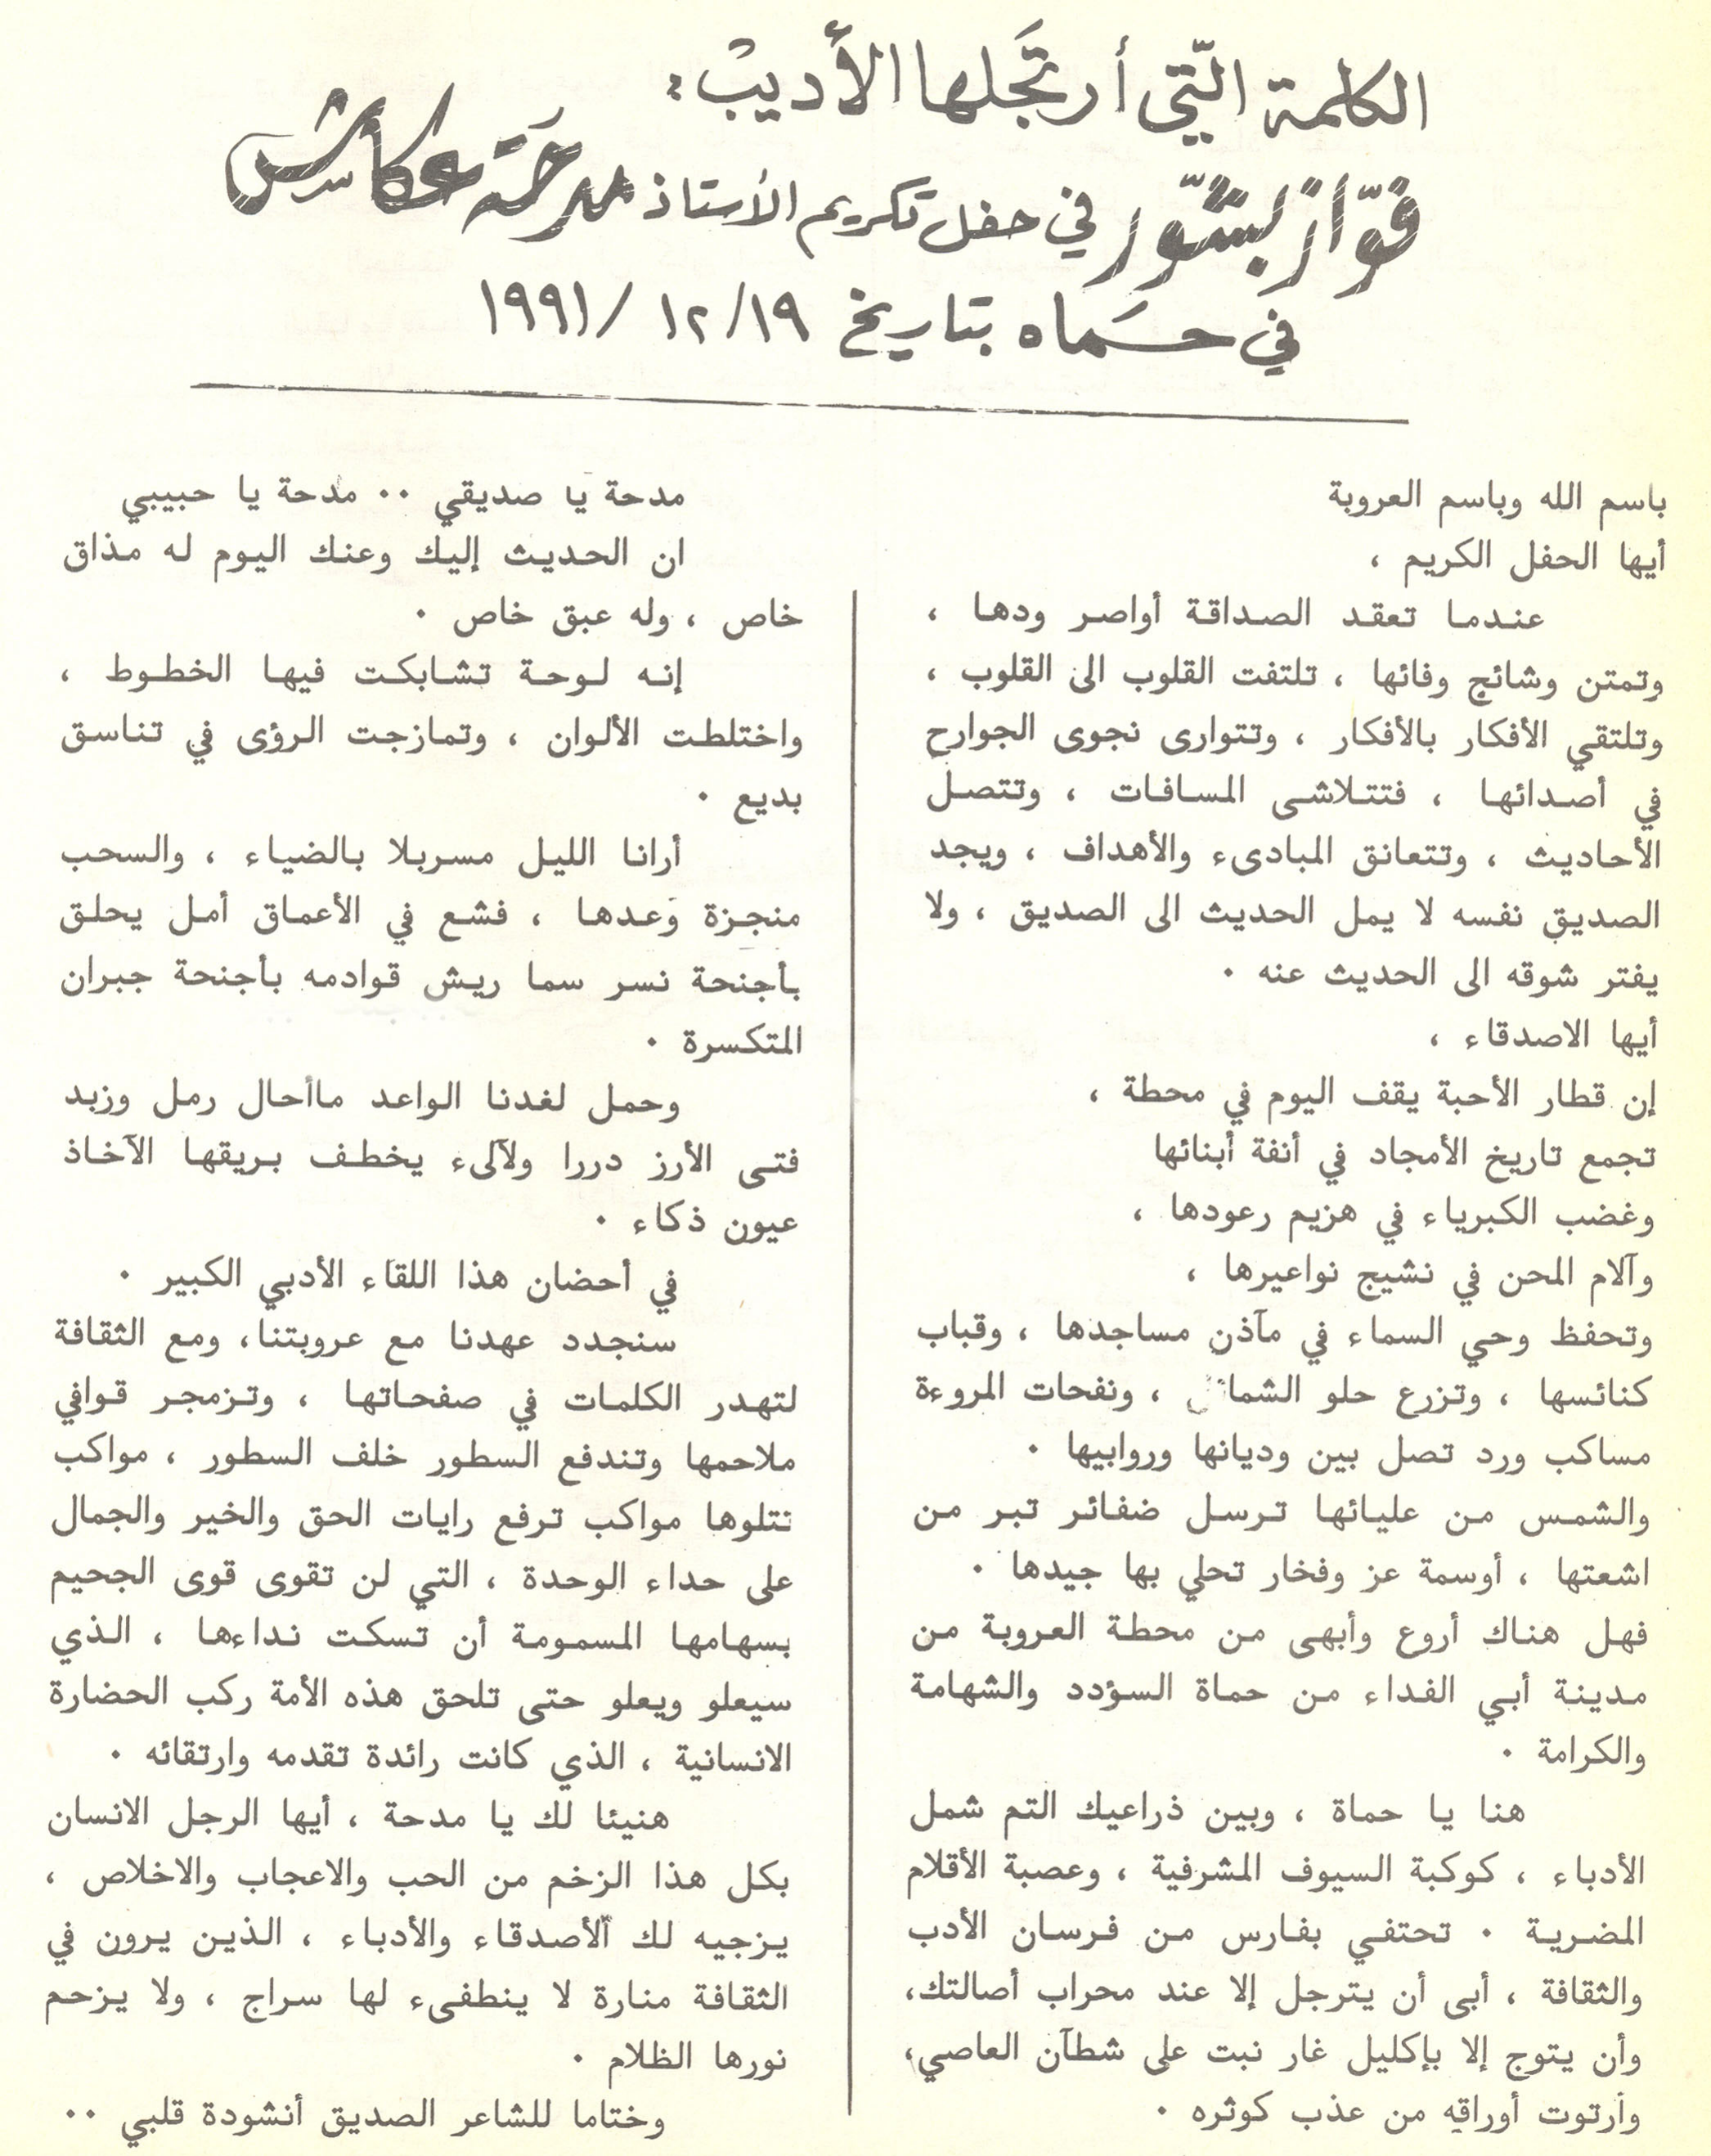 الكلمة التي أرتجلها الأديب :
فوّاز بشّور في حفل تكريم الأستاذ مدحة عكاش
في حماه بتاريخ ١٢/١٩ /١٩٩١
باسم الله وباسم العروبة
أيها الحفل الكريم ،
عندما تعقد الصداقة أواصر ودها ،
وتمتن وشائج وفائها ، تلتفت القلوب الى القلوب ،
وتلتقي الأفكار بالأفكار ، وتتوارى نجوى الجوارح
في أصدائها ، فتتلاشى المسافات ، وتتصل
الأحاديث ، وتتعانق المبادىء والأهداف ، ويجد
الصديق نفسه لا يمل الحديث الى الصديق ، ولا
يفتر شوقه الى الحديث عنه ٠
أيها الاصدقاء ،
إن قطار الأحبة يقف اليوم في محطة ،
تجمع تاريخ الأمجاد في أنفة أبنائها
وغضب الكبرياء في هزيم رعودها ،
وآلام المحن في نشيج نواعيرها ،
وتحفظ وحي السماء في مآذن مساجدها ، وقباب
كنائسها ، وتزرع حلو الشمائل ، ونفحات المروءة
مساكب ورد تصل بين وديانها وروابيها ٠
والشمس من عليائها ترسل ضفائر تبر من
اشعتها ، أوسمة عز وفخار تحلي بها جيدها ٠
فهل هناك أروع وأبهى من محطة العروبة من
مدينة أبي الفداء من حماة السؤدد والشهامة
والكرامة ٠
هنا يا حماة ، وبين ذراعيك التم شمل
الأدباء ، كوكبة السيوف المشرفية ، وعصبة الأقلام
المضرية ٠ تحتفي بفارس من فرسان الأدب
والثقافة ، أبى أن يترجل إلا عند محراب أصالتك،
وأن يتوج إلا بإكليل غار نبت على شطآن العاصي،
وأرتوت أوراقه من عذب كوثره ٠
مدحة يا صديقي ٠٠ مدحة يا حبيبي
ان الحديث إليك وعنك اليوم له مذاق
خاص ، وله عبق خاص ٠
إنه لوحة تشابكت فيها الخطوط ،
واختلطت الألوان ، وتمازجت الرؤى في تناسق
بديع ٠
أرانا الليل مسربلا بالضياء ، والسحب
منجزة وعدها ، فشع في الأعماق أمل يحلق
بأجنحة نسر سما ريش قوادمه بأجنحة جبران
المتكسرة ٠
وحمل لغدنا الواعد ماأحال رمل وزبد
فتى الأرز دررا ولآلىء يخطف بريقها الآخاذ
عيون ذكاء ٠
في أحضان هذا اللقاء الأدبي الكبير ٠
سنجدد عهدنا مع عروبتنا، ومع الثقافة
لتهدر الكلمات في صفحاتها ، وتزمجر قوافي
ملاحمها وتندفع السطور خلف السطور ، مواكب
تتلوها مواكب ترفع رايات الحق والخير والجمال
على حداء الوحدة ، التي لن تقوى قوى الجحيم
بسهامها المسمومة أن تسكت نداءها ، الذي
سيعلو ويعلو حتى تلحق هذه الأمة ركب الحضارة
الانسانية ، الذي كانت رائدة تقدمه وارتقائه ٠
هنيئا لك يا مدحة ، أيها الرجل الانسان
بكل هذا الزخم من الحب والاعجاب والاخلاص ،
يزجيه لك الأصدقاء والأدباء ، الذين يرون في
الثقافة منارة لا ينطفىء لها سراج ، ولا يزحم
نورها الظلام ٠
وختاما للشاعر الصديق أنشودة قلبي ٠٠